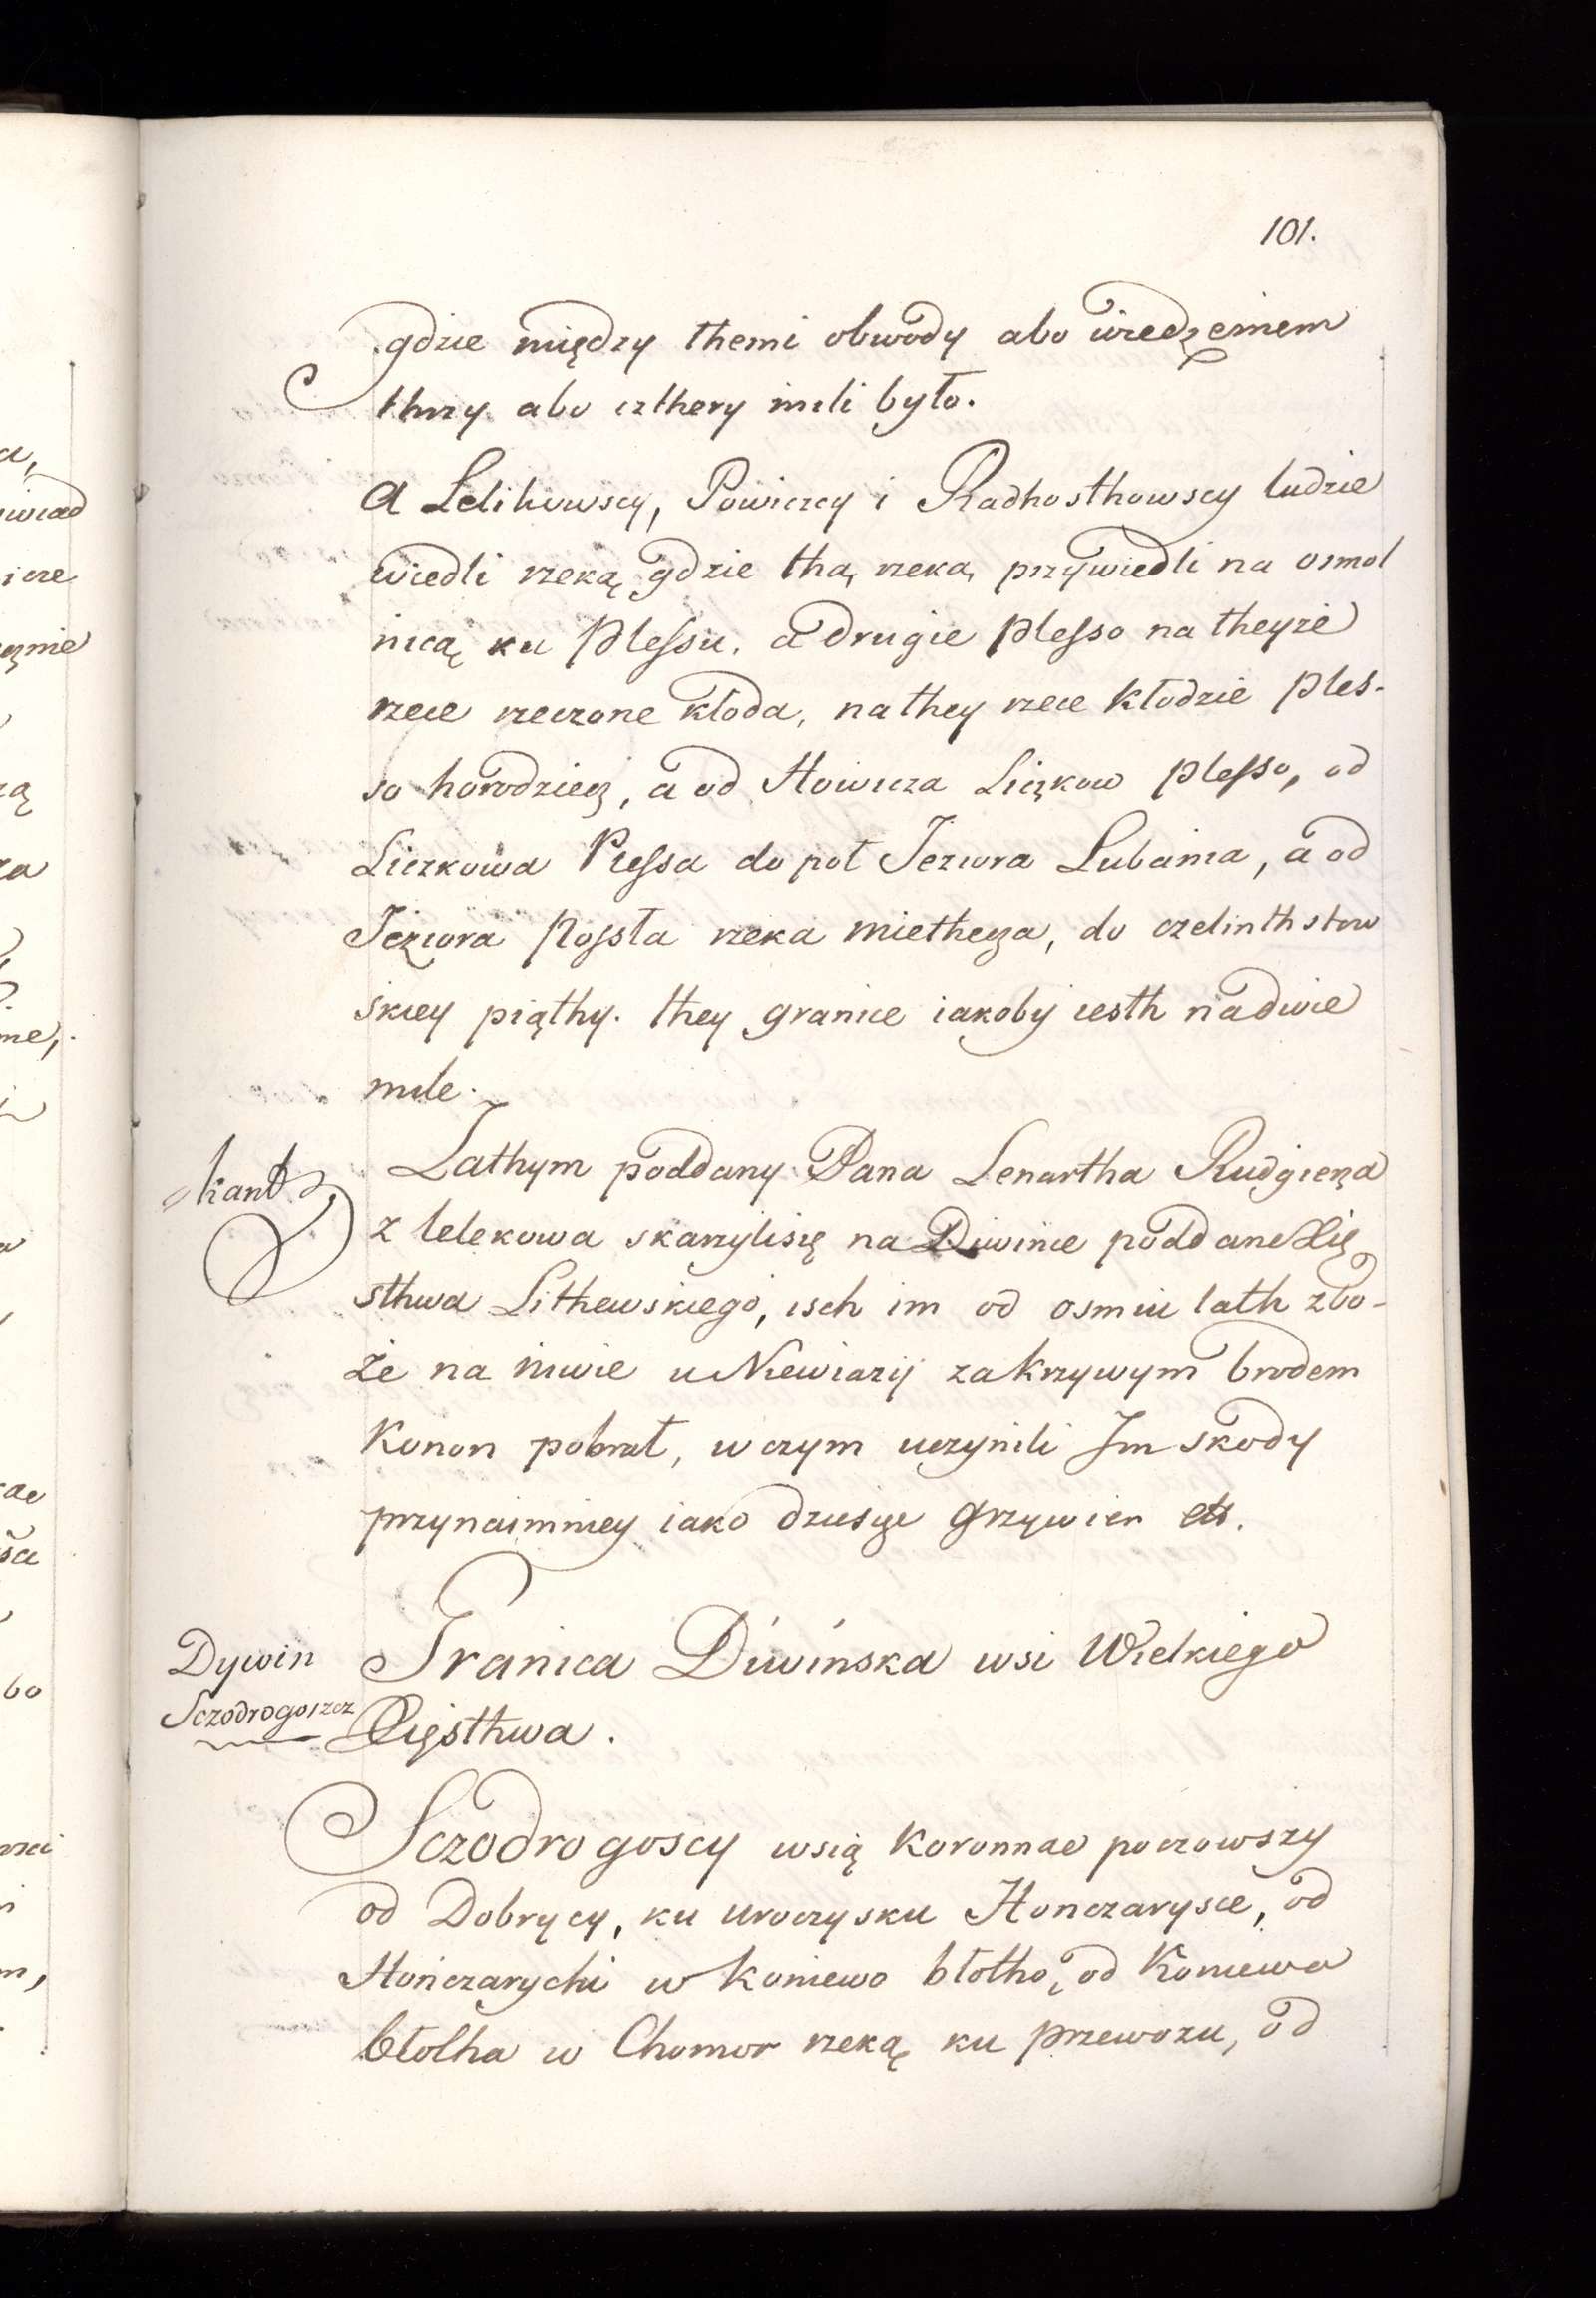 101.
gdzie między themi obwody abo wiedzeniem
thrzy abo czthery mili było.
A Lelikowscy, Powiczcy i Radhosthowscy ludzie
wiedli rzeką gdzie tha, rzeka, przywiedli na osmol
nicą ku Plessu. a drugie Plesso na theyże
rzece rzeczone kłoda, na they rzece kłodzie Ples-
so horodziecz, a od Howicza Liczkow Plesso, od
Liczkowa Plessa do poł Jeziora Lubania, a od
Jeziora Possła rzeka miethecza, do czelinthstow
skiey piąthy. they granice iakoby iesth nadwie
mile.
kant
Zathym poddany Pana Lenartha Rudgierza
z lelekowa skarzylisię na Diwince poddane Xię
sthwa Lithewskiego, isch im od osmiu lath zbo-
że na niwie u Niewiazij za Krzywym brodem
Konon pobrał, w czym uczynili Im skody
przynaimniey iako dziesięc grzywien etc.
Dywin
Sczodrogoszcz
Granica Diwińska wsi Wielkiego
Xięsthwa.
Sczodrogoscy wsią Koronnae poczowszy
od Dobrycy, ku uroczysku Honczarysce, od
Honczarychi w Koniewo błotho, od Koniewa
błotha w Chomor rzeką ku przewozu, od